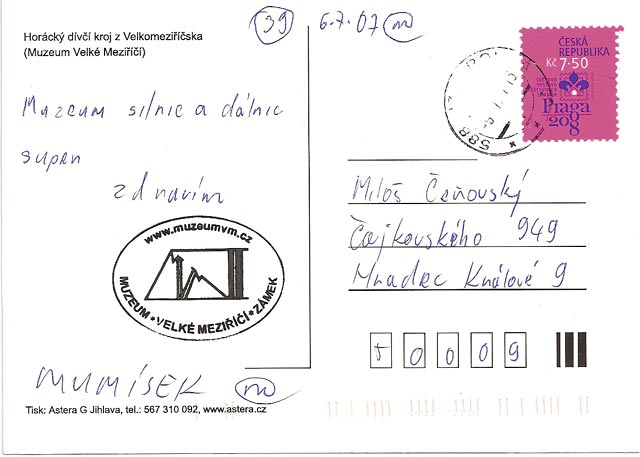 Horácký dívčí kroj z Velkomeziříčska
(Muzeum Velké Meziříčí)
39
6.7.07
Muzeum silnic a dálnic
super
zdravím
www.muzeumvm.cz
MUZEUM • VELKÉ MEZIŘÍČÍ • ZÁMEK
MUMÍSEK
Tisk: Astera G Jihlava, tel.: 567 310 092, www.astera.cz
ČESKÁ
REPUBLIKA
Kč 7·50
SVĚTOVÁ
VÝSTAVA
POŠTOVNÍCH
ZNÁMEK
Praga
2008
588
Miloš Čeňovský
Čajkovského 949
Hradec Králové 9
50009